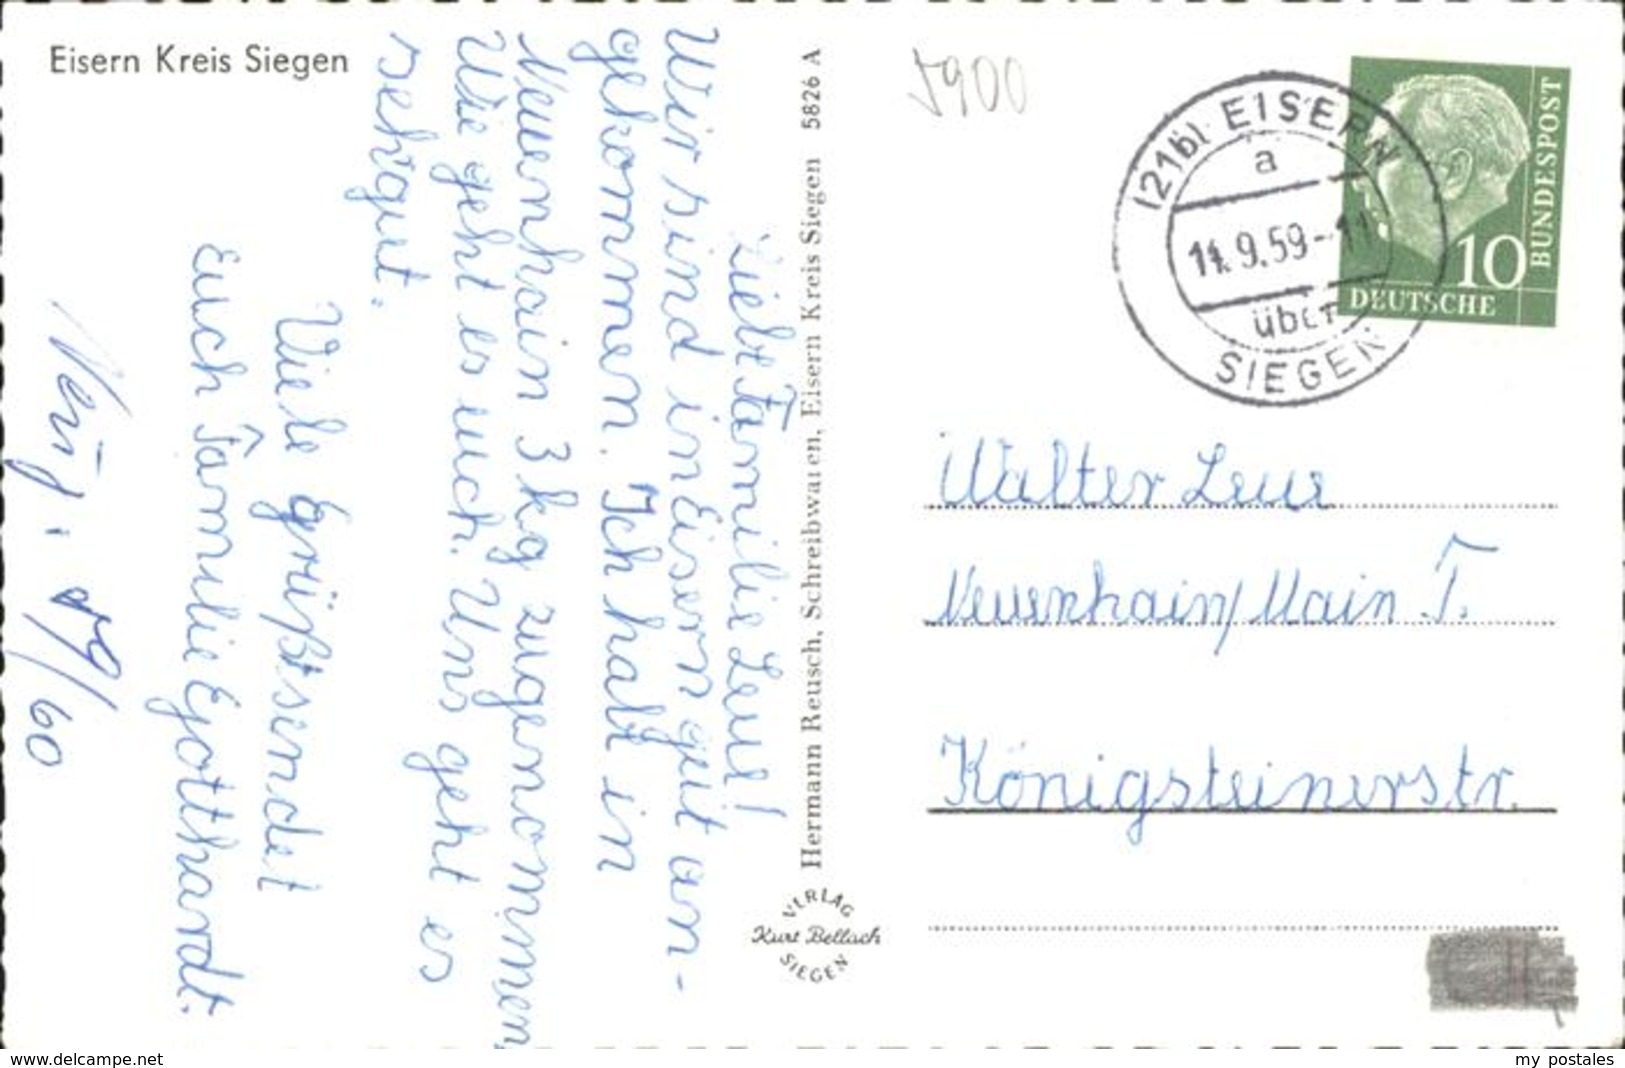 Eisern Kreis Siegen
Liebe Familie Leue!
Wir sind in Eisern gut an-
gekommen. Ich habe in
Neuenhain 3 kg zugenommen
Wie geht es euch. Uns geht es
sehr gut.
Viele Grüße sendet
Euch Familie Gotthardt.
/60
Hermann Reusch, Schreibwaren, Eisern Kreis Siegen 5826 A
VERLAG
Kurt Bellach
SIEGEN
5900
(21b) EISERN
a
11.9.59-11
über
SIEGEN
10
DEUTSCHE
BUNDESPOST
Walter Leue
Neuenhain/Main T.
Königsteinerstr.
www.delcampe.net
my postales